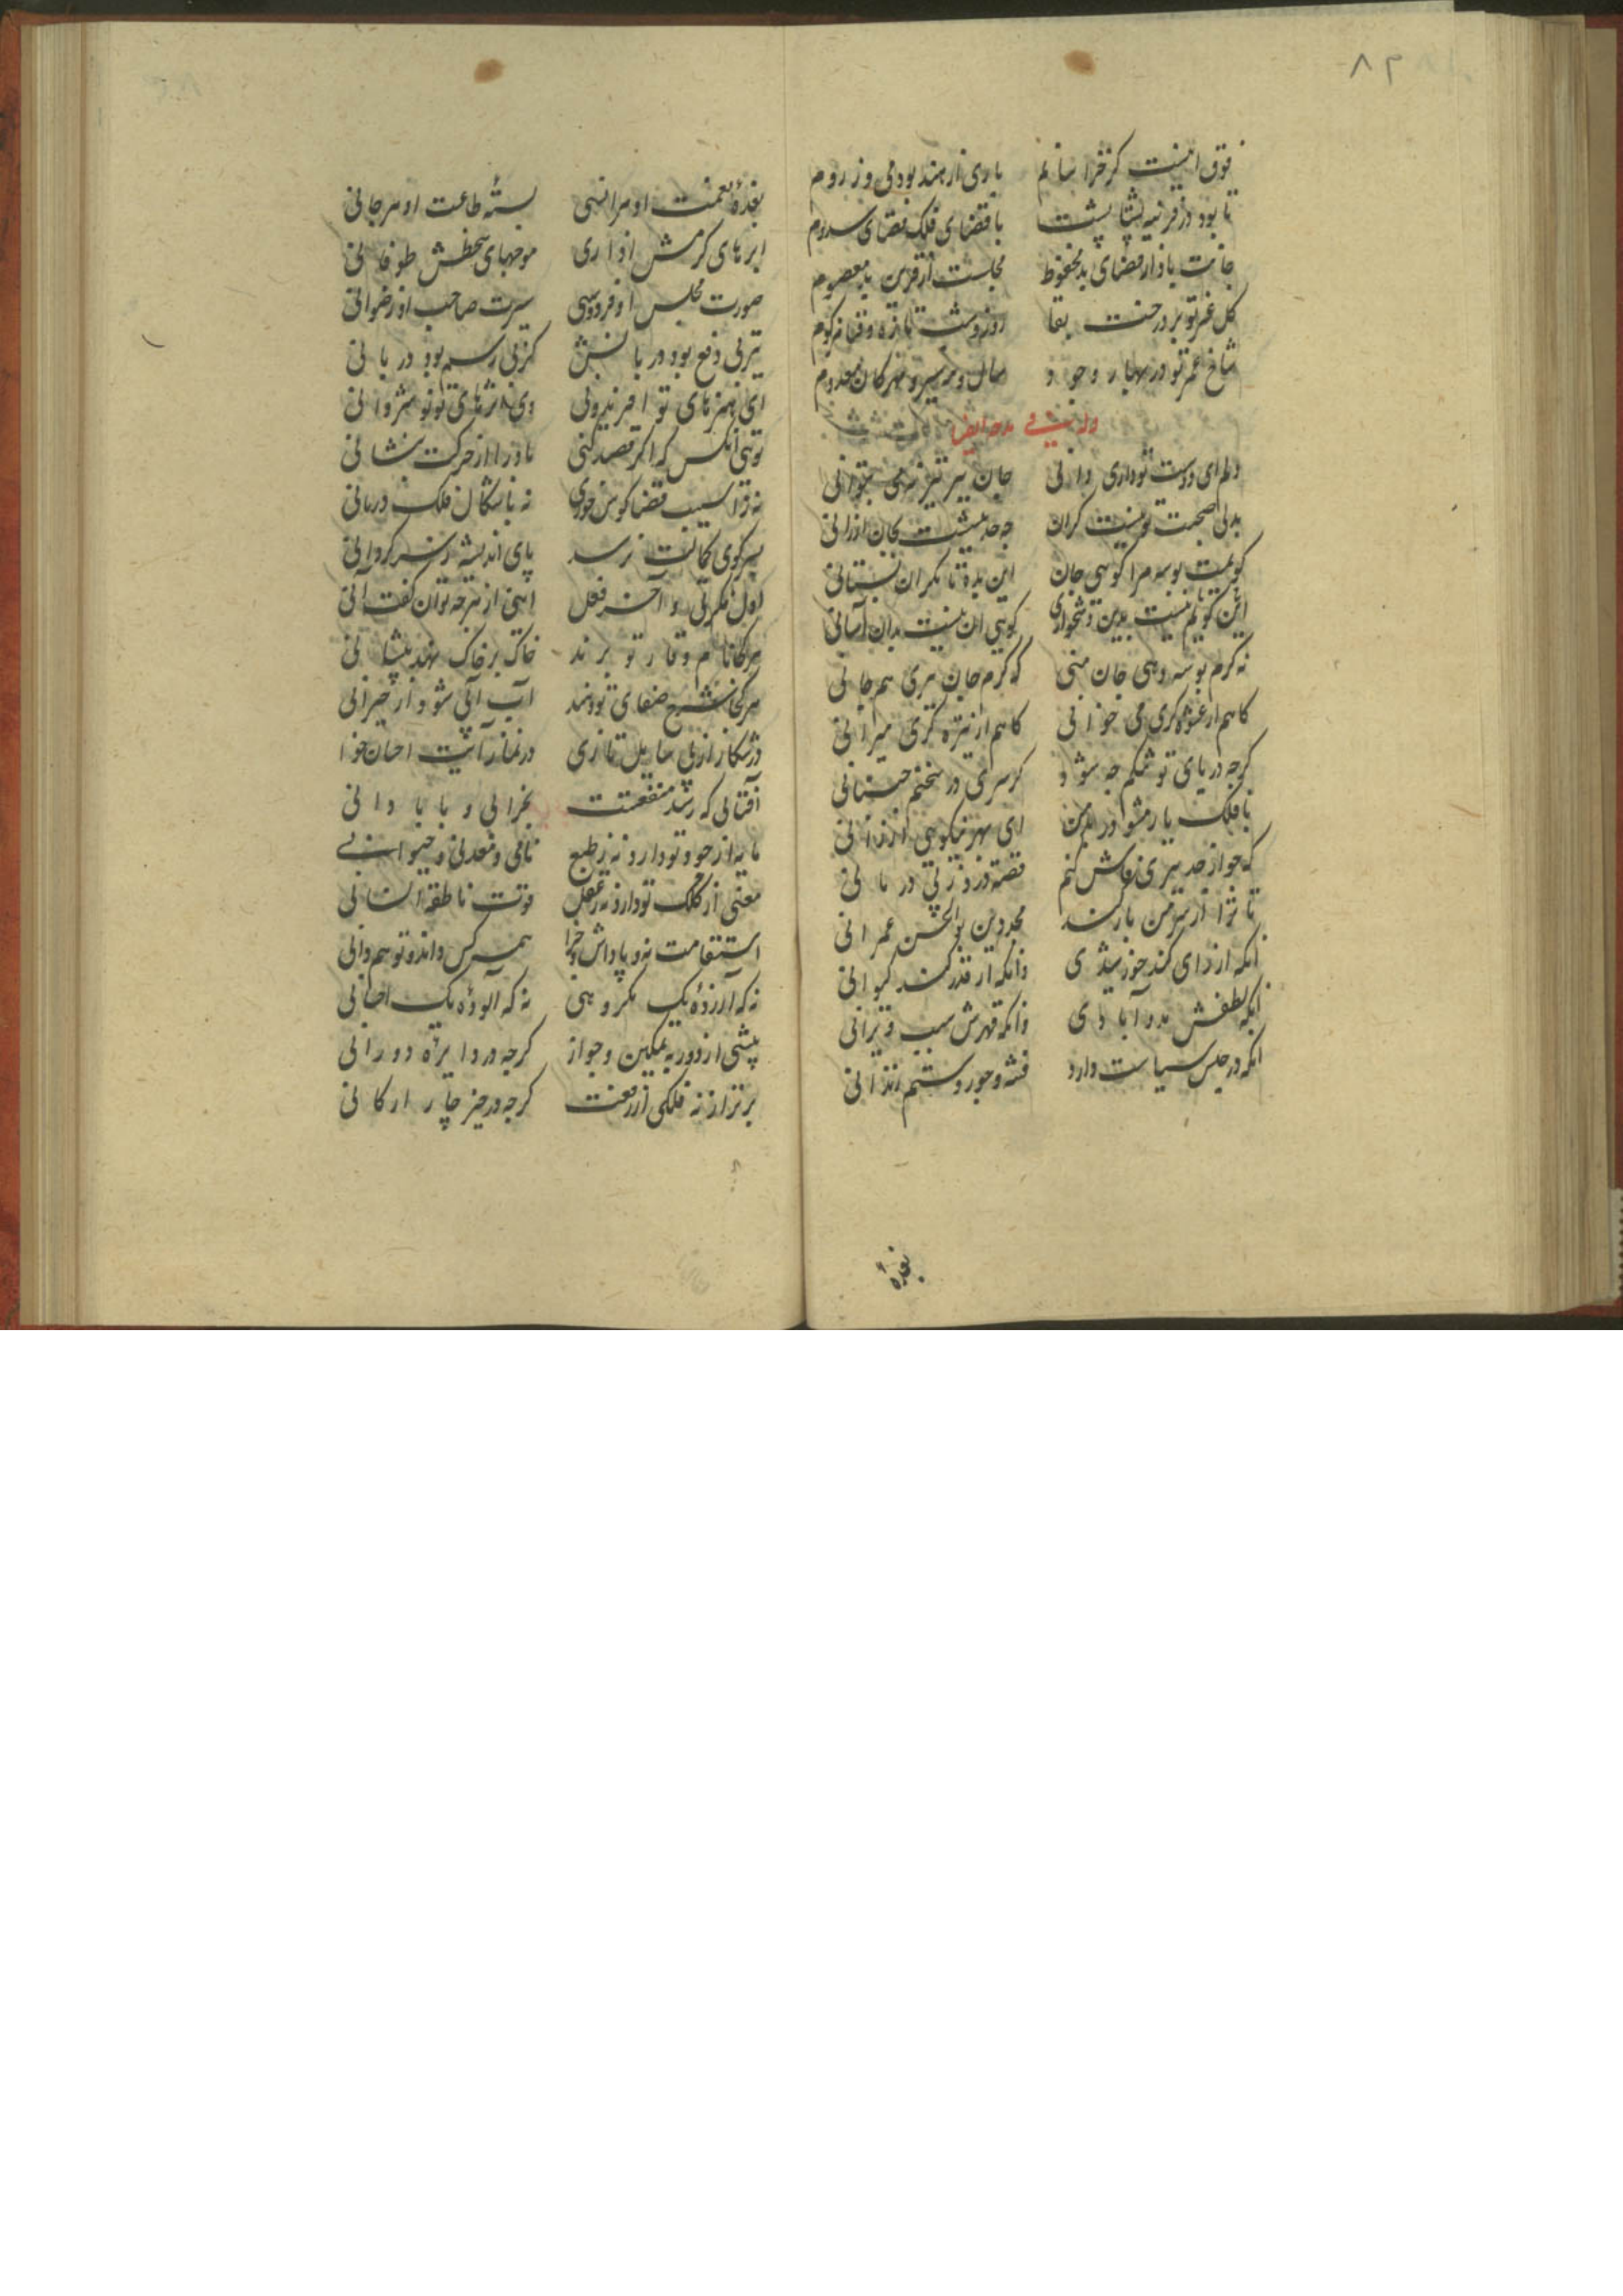 ۸۲
فوق اینست کز خراسانم باری از هند بودمی وز روم
تا بود در قرینه پشتاپشت با قضای فلک قضای سدوم
جانت باد از قضای بد محفوظ مجلست از قرین بد معصوم
گل عز تو بر درخت بقا روز و شب تازه
شاخ عمر تو در بهار وجود سال و مه سبز و مهرگان معدوم
وله فی مدحه ایضا
دلم ای دوست تو داری دانی جان ببر نیز نمی نتوانی
بدلی صحبت تو نیست گران چه حدیثست بجان ارزانی
گویمت بوسه مرا گویی جان این بده تا مگر آن بستانی
این گویم نیست بدین دشواری گویی آن نیست بدان آسانی
نه گرم بوسه دهی جان منی که گرم جان ببری هم جانی
گاهم از عشوه گری می خوانی گاهم از تیره گری میرانی
گرچه در پای تو شم چه شود گر سری در سخنم جنبانی
با فلک یار مشو در بد من ای بهر نیکویی ارزانی
که جواز حد ببری فاش کنم قصه درد ز بی درمانی
تا ترا از سر من باز کند مجددین بوالحسن عمرانی
آنکه از رای کند خورشیدی وانکه از قدر کند کیوانی
آنکه لطفش مدد آبادی وانکه قهرش سبب ویرانی
آنکه در حبس سیاست دارد فتنه و جور و ستم زندانی
بغذهٔ
بغذهٔ نعمت او هر انسی بستهٔ طاعت او هر جانی
ابرهای کرمش آذاری موجهای سخطش طوفانی
صورت مجلس او فردوسی سیرت صاحب او رضوانی
تیر بی دفع بود دربانش کز بی رسم بود دربانی
ای هنرهای تو افریدونی وی اثرهای تو نوشروانی
تویی آنکس که اگر قصد کنی باد را از حرکت بنشانی
نه ز آسیب قضا گوش خوری نه باشکال فلک درمانی
بسر کوی کمالت نرسد پای اندیشه ز سرگردانی
اول فکرتی و آخر فعل اینی از هرچه توان گفت آنی
هرکجا نام وقار تو برند خاک بر خاک نهد پیشانی
هرکجا شرح صفای تو دهند آب آبی شود از حیرانی
در شکار از پی سایل تازی در نماز آیت احسان خوانی
آفتابی که رسد منفعتت بخرابی و بآبادانی
مایه از جود تو دارد نه ز طبع نامی و معدنی و حیوانی
معنی از کلک تو دارد نه ز عقل قوت ناطقه انسانی
استقامت نه و پاداش جزا همه کس داند و تو هم دانی
نه که آزردهٔ یک مکروهی نه که آلودهٔ یک احسانی
پیشی از دور به تمکین و جواز گرچه در دایرهٔ دورانی
برتر از نه فلکی از رفعت گرچه در حیز چار ارکانی